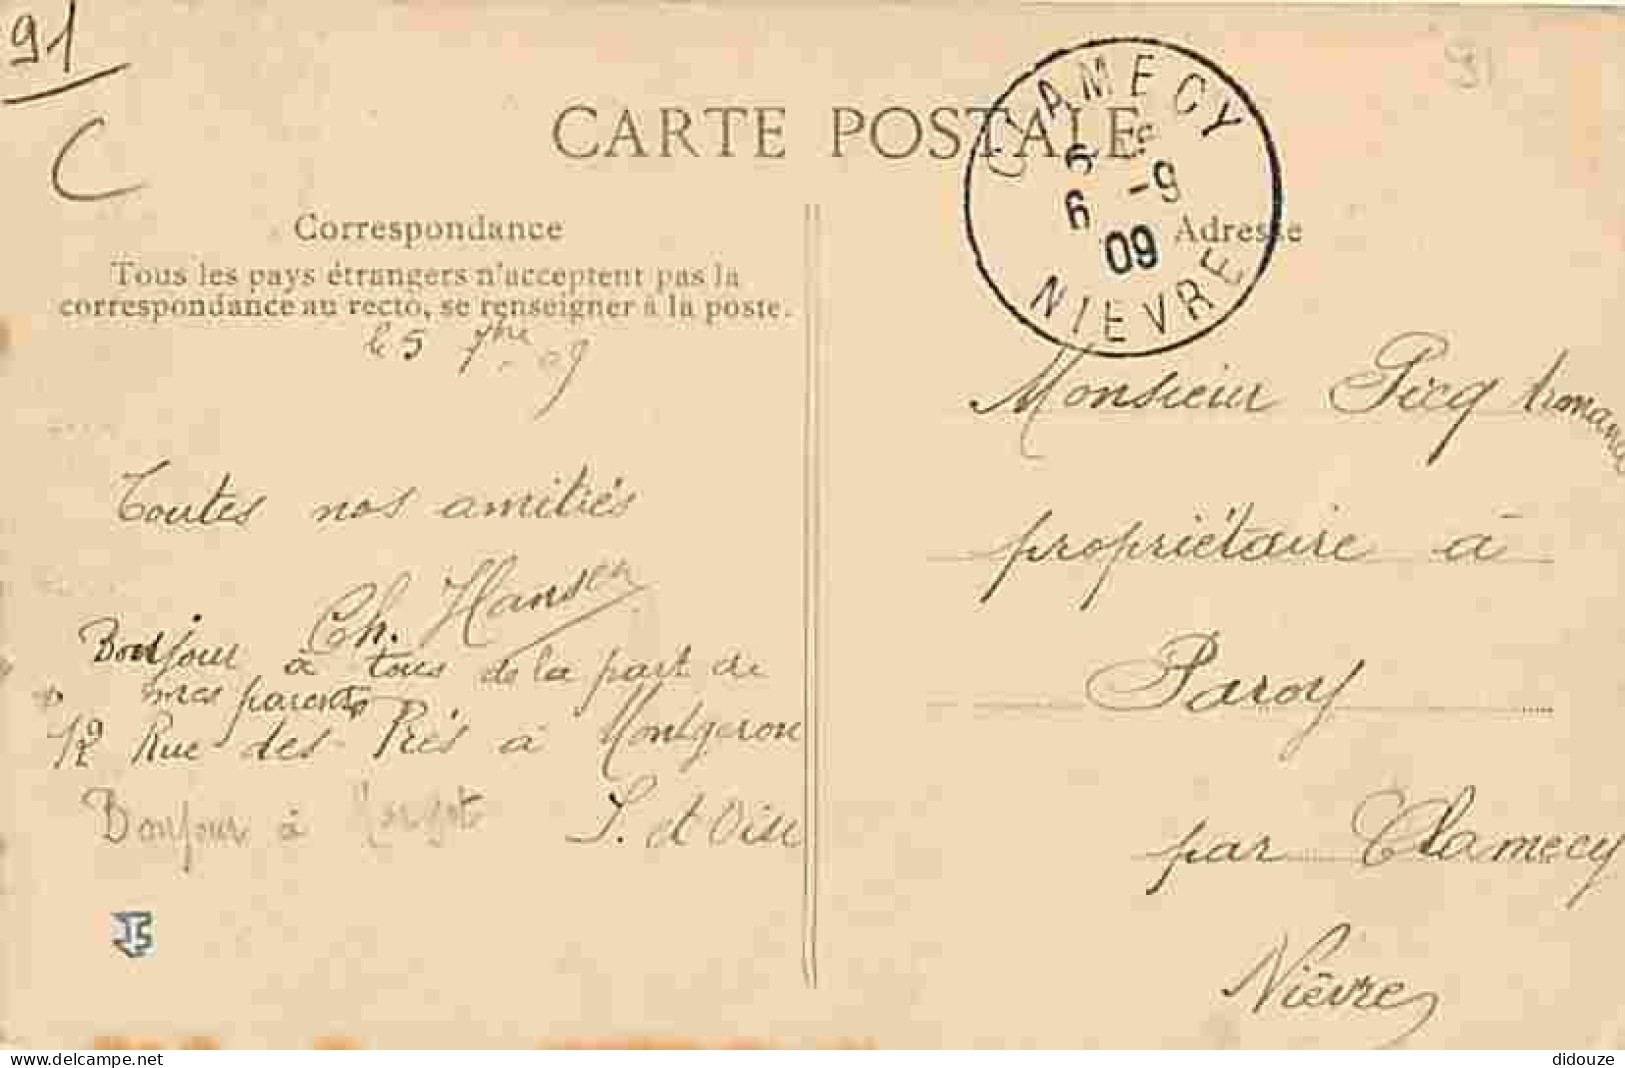 91
C
91
CARTE POSTALE
CLAMECY
6
6 -9
09
NIEVRE
Correspondance
Tous les pays étrangers n'acceptent pas la
correspondance au recto, se renseigner à la poste.
le 5 7bre 09
Toutes nos amitiés
Ch. Hansen
Bonjour à tous de la part de
mes parents
Rue des Prés à Montgeron
S. et Oise
Bonjour à Margot
JS
Adresse
Monsieur Picq
propriétaire à
Paroy
par Clamecy
Nièvre
www.delcampe.net
didouze